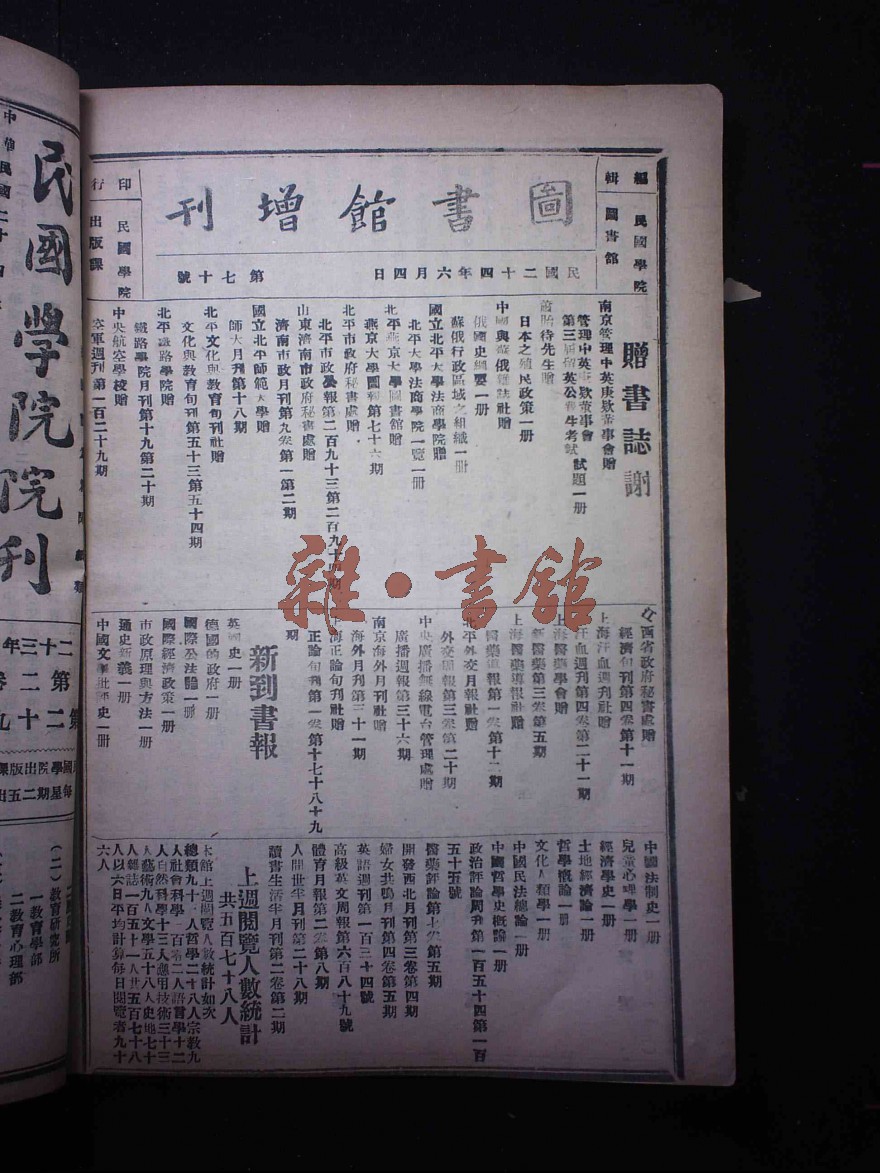 圖書館增刊
民國二十四年六月四日
第七十號
編輯
民國學院
圖書館
印行
民國學院
出版課
贈書誌謝
南京管理中英庚款董事會贈
管理中英庚款董事會
第三屆留英公費生考試試題一册
日本之殖民政策一册
中國與蘇俄雜誌社贈
俄國史綱要一册
蘇俄行政區域之組織一册
國立北平大學法商學院贈
北平大學法商學院一覽一册
北平燕京大學圖書館贈
燕京大學圖報第七十六期
北平市政府秘書處贈
北平市政公報第二百九十三第二百九十四期
山東濟南市政府秘書處贈
濟南市政月刊第九卷第一第二期
國立北平師範大學贈
師大月刊第十八期
北平文化與教育旬刊社贈
文化與教育旬刊第五十三第五十四期
北平鐵路學院贈
鐵路學院月刊第十九第二十期
中央航空學校贈
空軍週刊第一百二十九期
西省政府秘書處贈
經濟旬刊第四卷第十一期
上海汗血週刊社贈
汗血週刊第四卷第二十一期
上海醫藥學會贈
新醫藥第三卷第五期
上海醫藥導報社贈
醫藥導報第一卷第十二期
北平外交月報社贈
外交週報第三卷第二十期
中央廣播無線電台管理處贈
廣播週報第三十六期
南京海外月刊社贈
海外月刊第三十一期
上海正論旬刊社贈
正論旬刊第一卷第十七十八十九
期
新到書報
英國史一册
德國的政府一册
國際公法論一册
國際經濟政策一册
市政原理與方法一册
通史新義一册
中國文學批評史一册
中國法制史一册
兒童心理學一册
經濟學史一册
土地經濟論一册
哲學概論一册
文化人類學一册
中國民法總論一册
中國哲學史概論一册
政治評論周刊第一百五十四第一百
五十五號
醫藥評論第七卷第五期
開發西北月刊第三卷第四期
婦女共鳴月刊第四卷第五期
英語週刊第一百三十四號
高級英文周報第六百八十九號
體育月報第二卷第八期
人間世半月刊第二十八期
讀書生活半月刊第二卷第二期
上週閱覽人數統計
共五百七十八人
本館上週閱覽人數統計如次
總類九十一人哲學二十八人宗教九
人社會科學一百零二人語言學十二
人自然科學十三人應用技術三十三
人藝術九人文學五十八人史地七十
人雜誌一百五十一人共五百七十八
人以六日平均計算每日閱覽者九十
六人
民國學院院刊
雜·書館